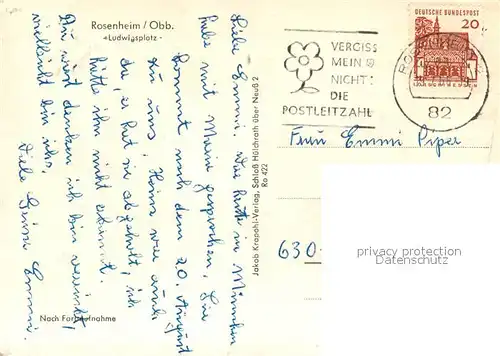 Rosenheim / Obb.
•Ludwigsplatz•
Liebe Emmi, die hatte in München
habe mit Maria gesprochen, Sie
kommt nach dem 20. August
zu uns. Heini war auch
da, er hat sie abgeholt, ich
hätte ihn nicht erkannt.
Du wirst denken ich bin verrückt,
vielleicht bin ich's,
Viele Grüsse Emmi.
Nach Farbaufnahme
Jakob Krapohl-Verlag, Schloß Hülchrath über Neuß 2
Ro 422
VERGISS
MEIN
NICHT:
DIE
POSTLEITZAHL
DEUTSCHE BUNDESPOST
20
82
Frau Emmi Piper
630
privacy protection
www.ansichtskartenversand.com